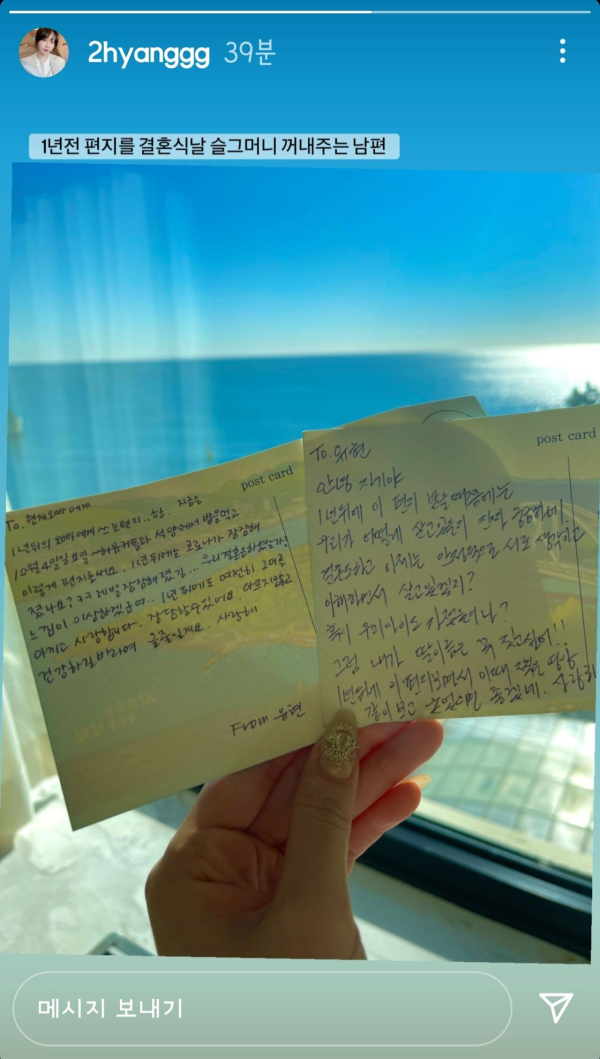 2hyanggg 39분
1년전 편지를 결혼식날 슬그머니 꺼내주는 남편
post card
To. 현제오빠에게
1년뒤의 오빠에게 쓰는편지.. 지금은
10월 4일 일요일 석양에서 밥을먹고
이렇게 편지를써요. 1년뒤에는 코로나가 잠잠해
졌나요? ㅋㅋ 제발 잠잠해졌길... 우리결혼은하였을까?
느낌이 이상하겠군여.. 1년뒤에도 여전히 그대를
아끼고 사랑합니다. 장담할수있어요. 아프지않고
건강하길바라며 글줄일게요. 사랑해
From 유현
post card
To. 유현
안녕 자기야
1년뒤에 이 편지 받을때쯤에는
우리가 어떻게 살고있을지 진짜 궁금하네.
결혼도하고 이제는 안정적으로 서로 생각하고
이해하면서 살고있을려나?
혹시 우리아이도 가졌으려나?
그럼 내가 딸이름은 꼭 짓고싶어!!
1년뒤에 이편지보면서 이때 찍은 영상
같이보고 있었으면 좋겠네. 사랑해
메시지 보내기